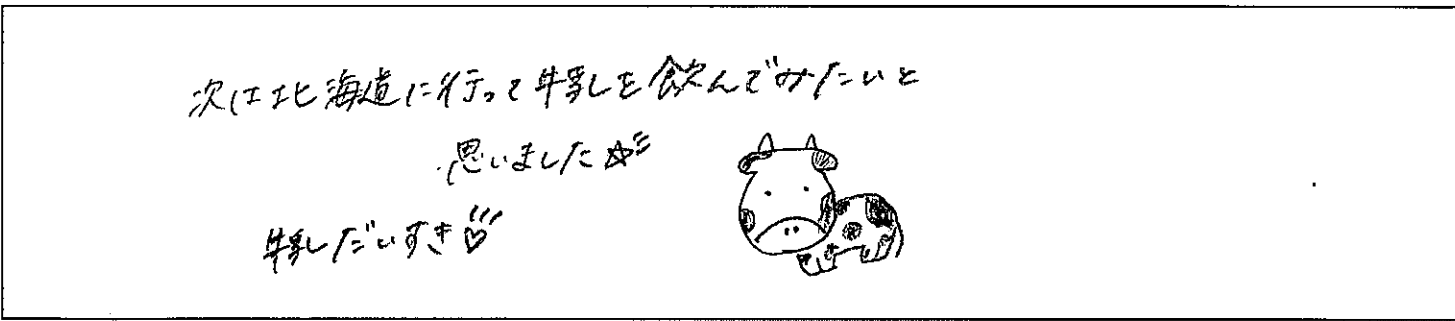 次は北海道に行って牛乳を飲んでみたいと
思いました☆
牛乳だいすき♡